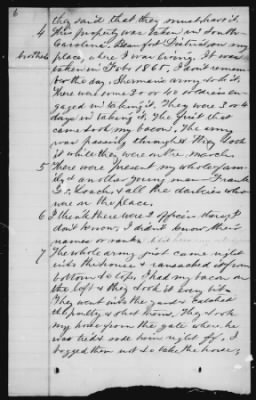 6
they said that they must have it.
4 This property was taken in South
Carolina, Beaufort District on my
place, where I was living. It was
taken in Feby 1865, I don't remem-
ber the day. Sherman's army took it.
There were some 30 or 40 soldiers en-
gaged in taking it. They were 3 or 4
days in taking it. The first that
came took my bacon. The army
was passing through & they took
it while they were on the march.
5 There were present my whole fami-
ly & another young man Frank
G. Roach, & all the darkies who
were on the place.
6 I think there were 2 officers there, I
don't know, I didn't know their
names or ranks.
7 The whole army first came right
into the house & ransacked it from
bottom to top. I had my bacon in
the loft & they took it every bit.
They went into the yard & catched
the poultry & shot them. They took
my horse from the gate where he
was tied & rode him right off, I
begged them not to take the horse,